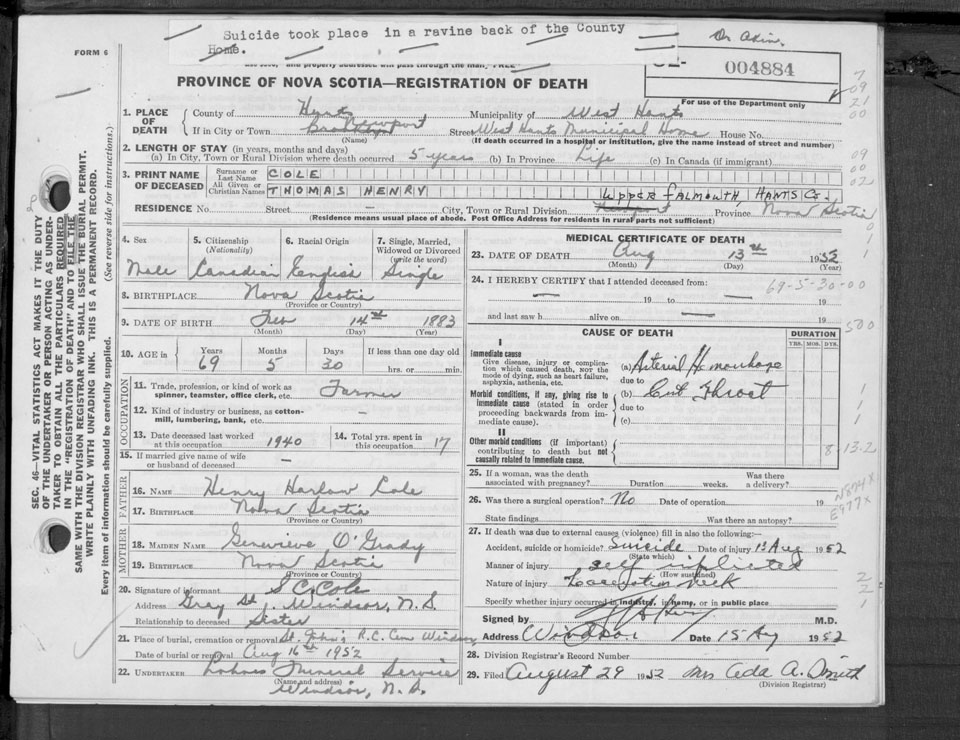 Suicide took place in a ravine back of the County
Home.
FORM 6
004884
PROVINCE OF NOVA SCOTIA—REGISTRATION OF DEATH
For use of the Department only
1. PLACE OF DEATH
County of Hants Municipality of West Hants
If in City or Town Street West Hants Municipal Home House No.
(Name) (If death occurred in a hospital or institution, give the name instead of street and number)
2. LENGTH OF STAY (in years, months and days)
(a) In City, Town or Rural Division where death occurred 5 years (b) In Province Life (c) In Canada (if immigrant)
3. PRINT NAME OF DECEASED
Surname or Last Name COLE
All Given or Christian Names THOMAS HENRY
UPPER FALMOUTH, HANTS Co.,
RESIDENCE No. Street — City, Town or Rural Division Province Nova Scotia
(Residence means usual place of abode. Post Office Address for residents in rural parts not sufficient)
4. Sex
5. Citizenship (Nationality)
6. Racial Origin
7. Single, Married, Widowed or Divorced (write the word)
Male Canadian English Single
8. BIRTHPLACE Nova Scotia
(Province or Country)
9. DATE OF BIRTH Feb 14th 1883
(Month) (Day) (Year)
10. AGE in Years Months Days If less than one day old
69 5 30 hrs. or min.
OCCUPATION
11. Trade, profession, or kind of work as spinner, teamster, office clerk, etc. Farmer
12. Kind of industry or business, as cotton-mill, lumbering, bank, etc. —
13. Date deceased last worked at this occupation 1940
14. Total yrs. spent in this occupation 17
15. If married give name of wife or husband of deceased —
FATHER
16. NAME Henry Harlow Cole
17. BIRTHPLACE Nova Scotia
(Province or Country)
MOTHER
18. MAIDEN NAME Genevieve O'Grady
19. BIRTHPLACE Nova Scotia
(Province or Country)
20. Signature of informant S C Cole
Address Gray St, Windsor, N.S.
Relationship to deceased Sister
21. Place of burial, cremation or removal St. John's R.C. Cem Windsor
Date of burial or removal Aug 16th 1952
22. UNDERTAKER Funeral Service
(Name and address)
Windsor, N.S.
MEDICAL CERTIFICATE OF DEATH
23. DATE OF DEATH Aug 13th 1952
(Month) (Day) (Year)
24. I HEREBY CERTIFY that I attended deceased from:
69-5-30-00
— 19 to — 19
and last saw h alive on — 19
CAUSE OF DEATH
DURATION
YRS. MOS. DYS.
I
Immediate cause
Give disease, injury or complication which caused death, NOT the mode of dying, such as heart failure, asphyxia, asthenia, etc.
(a) Arterial Hemorrhage
due to
Morbid conditions, if any, giving rise to immediate cause (stated in order proceeding backwards from immediate cause).
(b) Cut Throat
due to
(c)
II
Other morbid conditions (if important) contributing to death but not causally related to immediate cause.
8-13-2
25. If a woman, was the death associated with pregnancy? Duration weeks. Was there a delivery?
26. Was there a surgical operation? No Date of operation 19
State findings Was there an autopsy?
N874X
E977X
27. If death was due to external causes (violence) fill in also the following:—
Accident, suicide or homicide? Suicide Date of injury 13 Aug 1952
(State which)
Manner of injury self inflicted
(How sustained)
Nature of injury Laceration neck
Specify whether injury occurred in industry, in home, or in public place
Signed by M.D.
Address Windsor Date 15 Aug 1952
28. Division Registrar's Record Number
29. Filed August 29 1952 Mrs Ada A. Smith
(Division Registrar)
SEC. 46—VITAL STATISTICS ACT MAKES IT THE DUTY
OF THE UNDERTAKER OR PERSON ACTING AS UNDER-
TAKER TO OBTAIN ALL THE PARTICULARS REQUIRED
IN THE "REGISTRATION OF DEATH" AND TO FILE THE
SAME WITH THE DIVISION REGISTRAR WHO SHALL ISSUE THE BURIAL PERMIT.
WRITE PLAINLY WITH UNFADING INK. THIS IS A PERMANENT RECORD.
Every item of information should be carefully supplied. (See reverse side for instructions.)